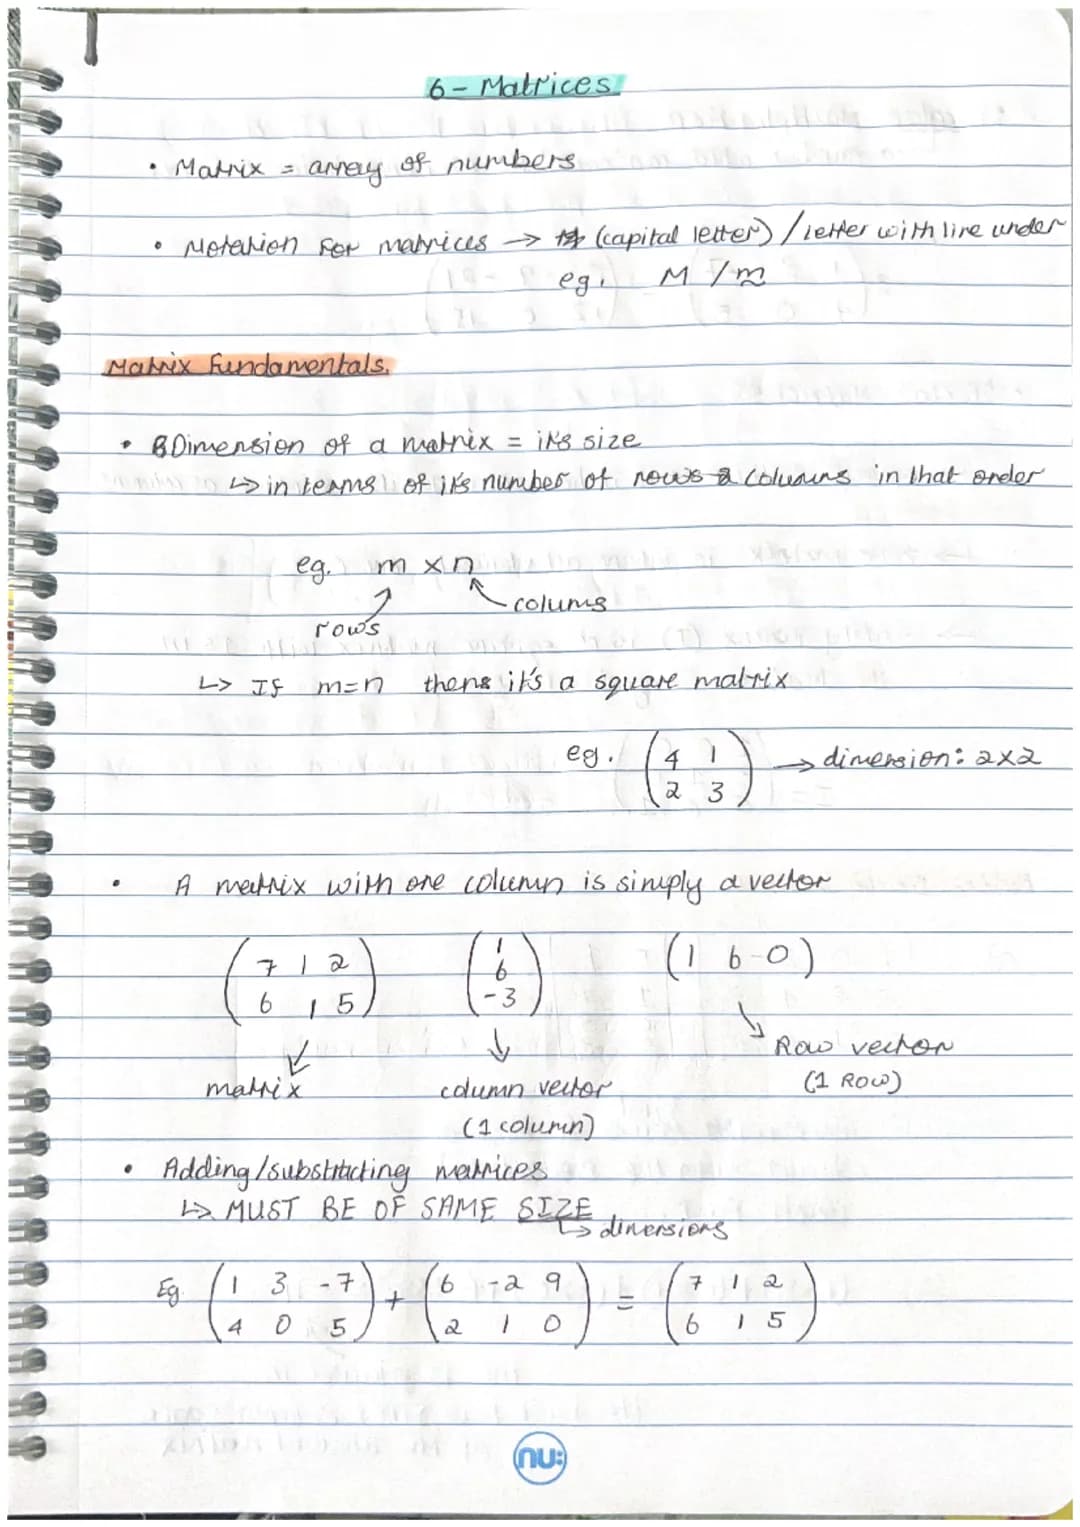 6 - Matrices
• Matrix = array of numbers
• Notation for matrices → (capital letter) / letter with line under
eg. M / m
Matrix Fundamentals.
• Dimension of a matrix = it's size
↳ in terms of it's number of rows & columns in that order
eg. m × n
colums
rows
↳ If m=n thens it's a square matrix
eg. (4 1) → dimension: 2×2
(2 3)
• A matrix with one column is simply a vector
(7 1 2) (1 (1 6 0)
(6 1 5) 6
-3)
Row vector
matrix column vector (1 Row)
(1 column)
• Adding/substracting matrices
↳ MUST BE OF SAME SIZE
↳ dimensions
Eg. (1 3 -7) + (6 -2 9) = (7 1 2)
(4 0 5) (2 1 0) (6 1 5)
nu: